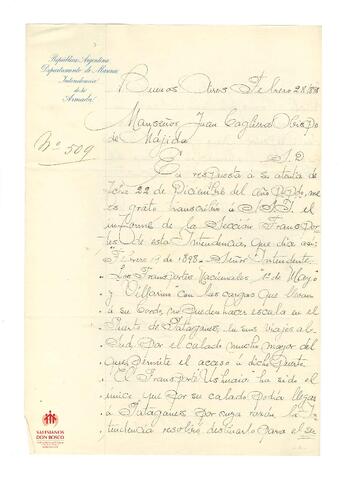 República Argentina
Departamento de Marina
Intendencia
de la
Armada
Nº 509
Buenos Aires Febrero 28/898
Monseñor Juan Cagliero Obispo
de Májida
S. D.
En respuesta a su atenta de
fecha 22 de Diciembre del año ppdo, me
es grato transcribir á S.S.I. el
informe de la Sección Transpor-
tes de esta Intendencia, que dice así:
"Febrero 17 de 1898 - Señor Intendente
Los Transportes Nacionales "1º de Mayo"
y "Villarino" con las cargas que llevan
á su bordo, no pueden hacer escala en el
Puerto de Patagones en sus viajes al
Sud, por el calado mucho mayor del
que permite el acceso á dicho Puerto.
"El Transporte Ushuaia" ha sido el
único que por su calado podía llegar
á Patagones por cuya razón la In-
tendencia resolvió destinarlo para el se
SALESIANOS
DON BOSCO